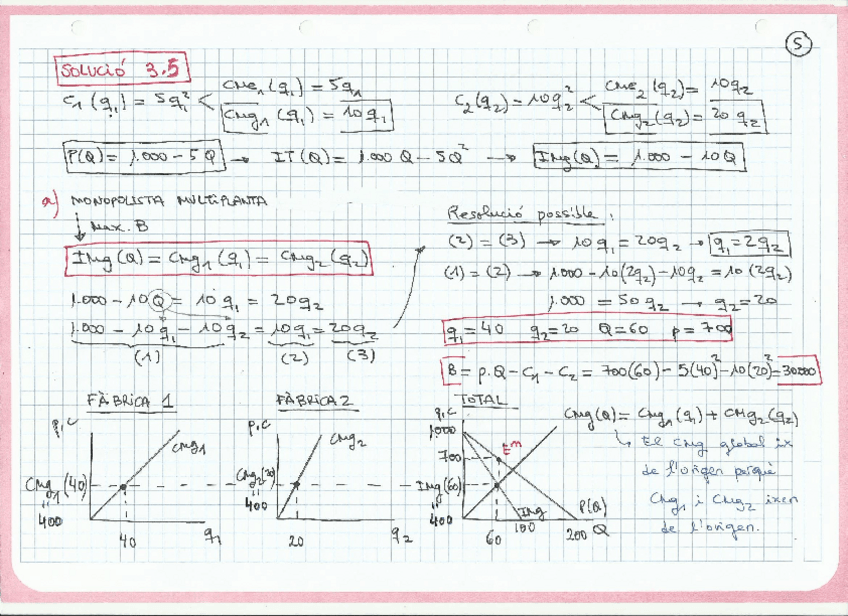 5
SOLUCIÓ 3.5
C₁(q₁) = 5q₁² < CMe₁(q₁) = 5q₁
CMg₁(q₁) = 10q₁
C₂(q₂) = 10q₂² < CMe₂(q₂) = 10q₂
CMg₂(q₂) = 20q₂
P(Q) = 1.000 - 5Q → IT(Q) = 1.000Q - 5Q² → IMg(Q) = 1.000 - 10Q
a) MONOPOLISTA MULTIPLANTA
↓ Max. B
IMg(Q) = CMg₁(q₁) = CMg₂(q₂)
1.000 - 10Q = 10q₁ = 20q₂
1.000 - 10q₁ - 10q₂ = 10q₁ = 20q₂
(1) (2) (3)
Resolució possible:
(2) = (3) → 10q₁ = 20q₂ → q₁ = 2q₂
(1) = (2) → 1.000 - 10(2q₂) - 10q₂ = 10(2q₂)
1.000 = 50q₂ → q₂ = 20
q₁ = 40 q₂ = 20 Q = 60 p = 700
B = p.Q - C₁ - C₂ = 700(60) - 5(40)² - 10(20)² = 30000
FÀBRICA 1
p,c
CMg₁
CMg₁(40)
=
400
40
q₁
FÀBRICA 2
p,c
CMg₂
CMg₂(20)
=
400
20
q₂
TOTAL
p,c
1.000
700
Eᵐ
IMg(60)
=
400
IMg
P(Q)
60
100
200
Q
CMg(Q) = CMg₁(q₁) + CMg₂(q₂)
↳ El CMg global ix
de l'origen perquè
CMg₁ i CMg₂ ixen
de l'origen.